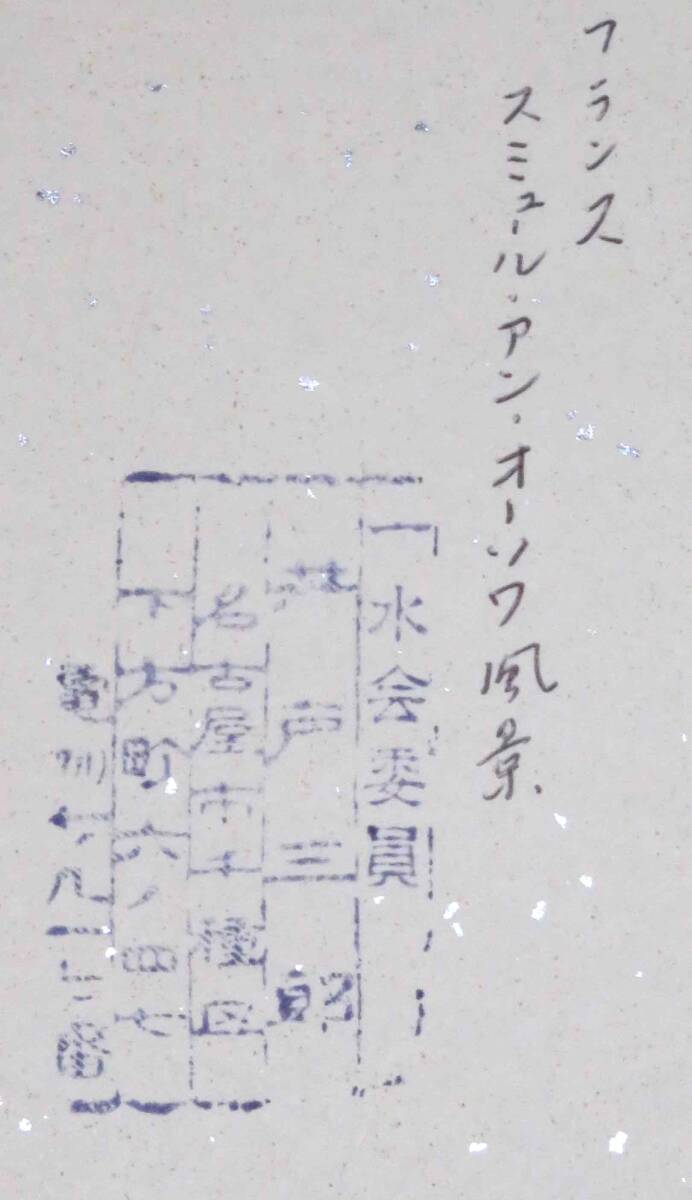 フランス
スミュール・アン・オーソワ風景
一水会委員
戸三郎
名古屋市千種区
下方町六ノ四七